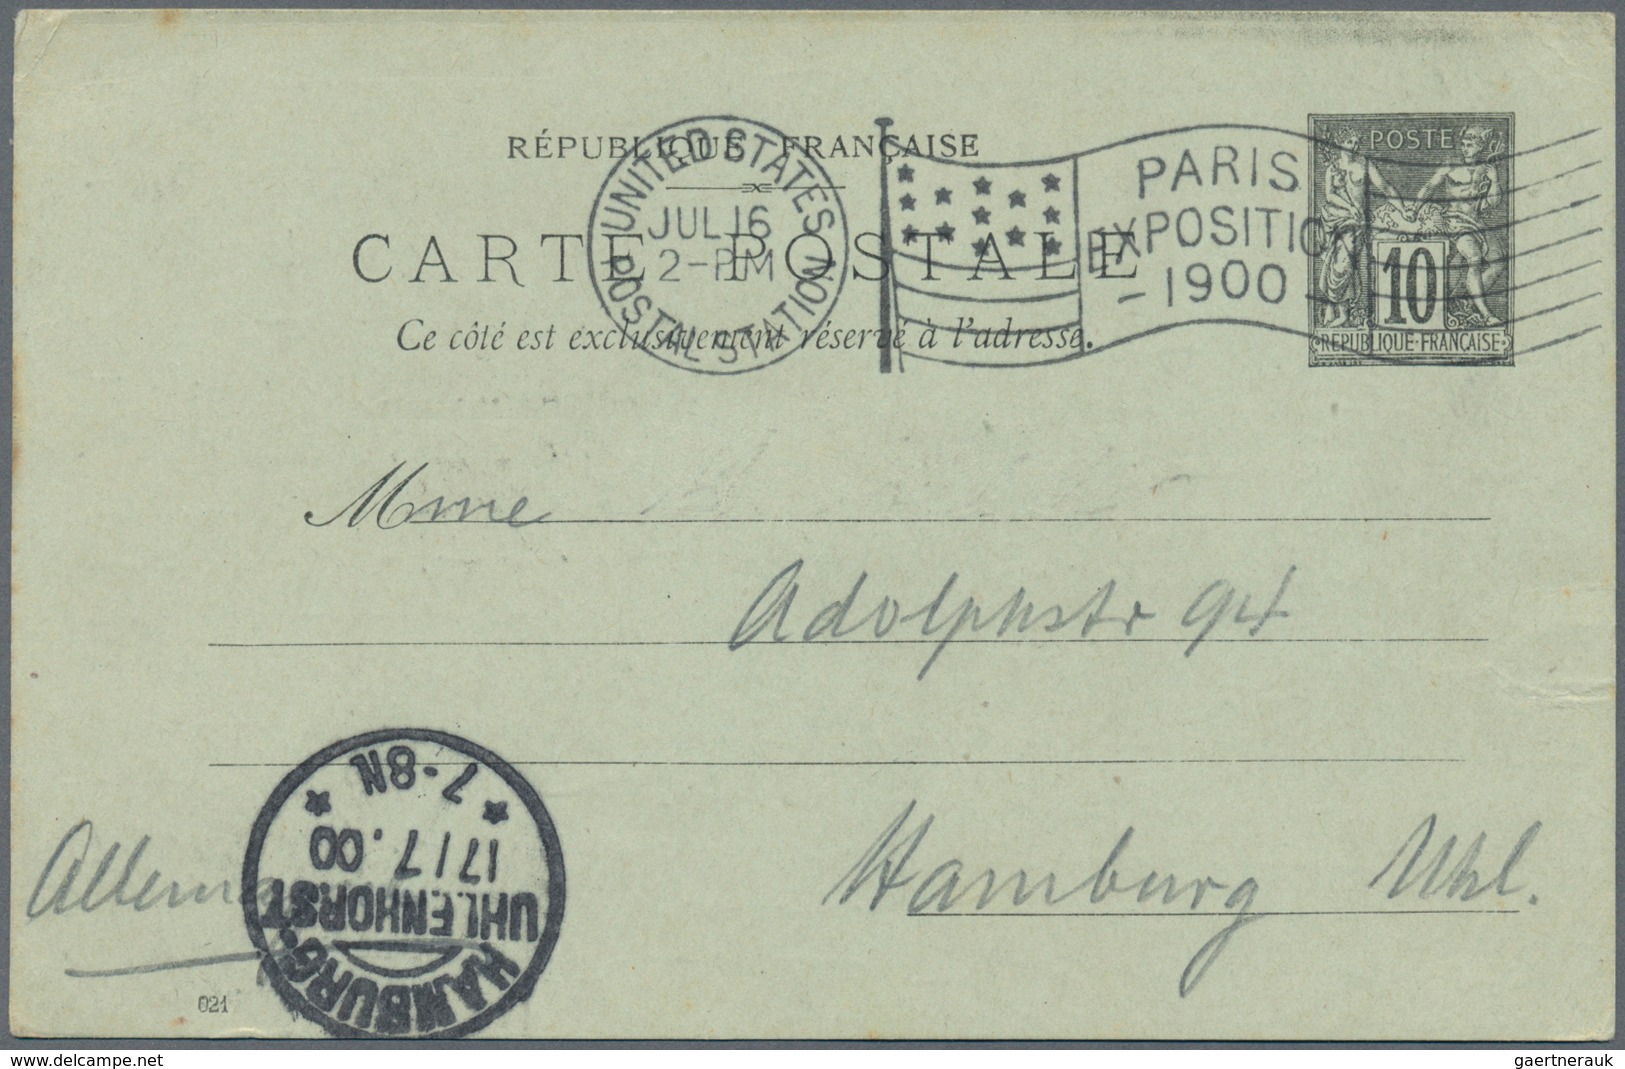 RÉPUBLIQUE FRANÇAISE
UNITED STATES
POSTAL STATION
JUL 16
2-PM
PARIS
EXPOSITION
-1900-
POSTE
10
REPUBLIQUE·FRANÇAISE
CARTE POSTALE
Ce côté est exclusivement réservé à l'adresse.
Mme
Adolphstr
Hamburg Uhl.
HAMBURG.
UHLENHORST
17/7.00
* 7-8N *
021
www.delcampe.net
gaertnerauk